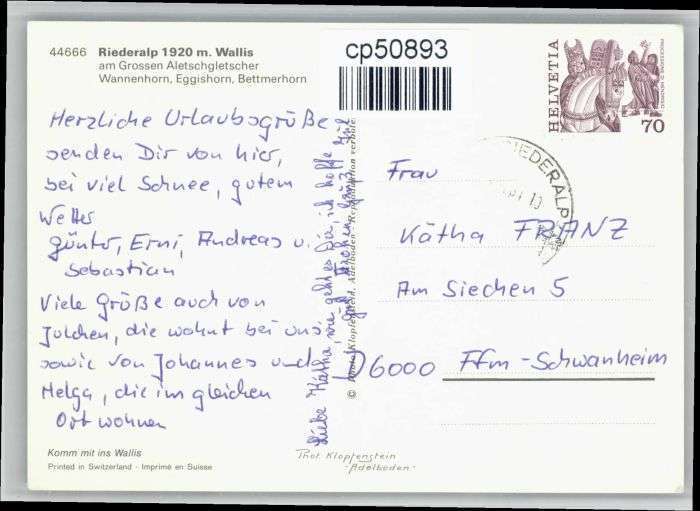 44666 Riederalp 1920 m. Wallis
am Grossen Aletschgletscher
Wannenhorn, Eggishorn, Bettmerhorn
cp50893
HELVETIA
70
RIEDERALP
Herzliche Urlaubsgrüße
senden Dir von hier,
bei viel Schnee, gutem
Wetter
Günter, Erni, Andreas u.
Sebastian
Viele Grüße auch von
Julchen, die wohnt bei uns
sowie von Johannes und
Helga, die im gleichen
Ort wohnen
Liebe Kätha, wie geht es Dir, ich hoffe
Frau
Kätha FRANZ
Am Siechen 5
D 6000 Ffm-Schwanheim
Komm mit ins Wallis
Printed in Switzerland - Imprimé en Suisse
Phot. Klopfenstein
-Adelboden-
© Photo Klopfenstein, Adelboden - Reproduktion verboten